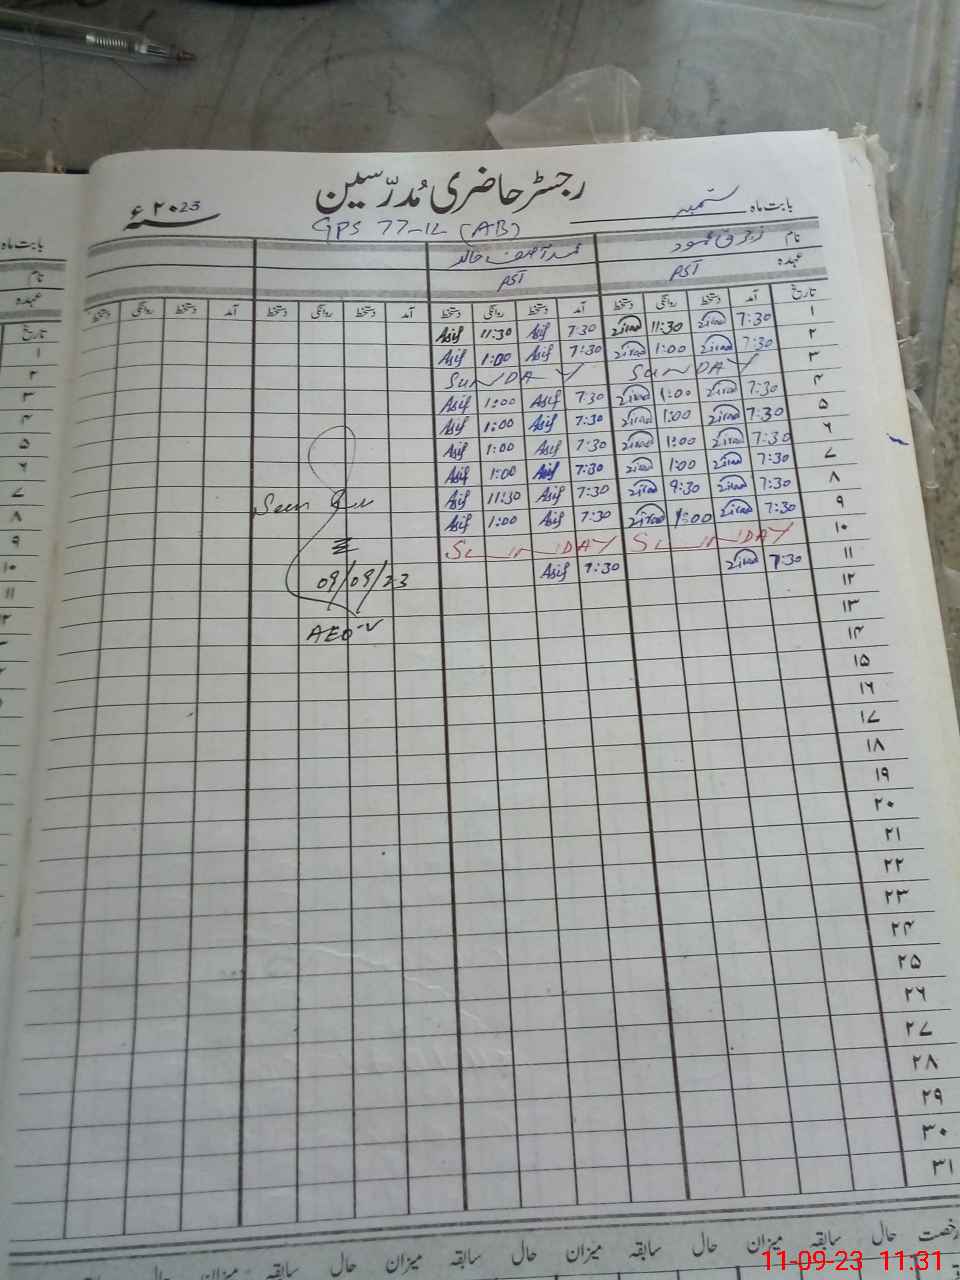 رجسٹر حاضری مُدرّسین
بابت ماہ ستمبر
سنہ ۲۰23ء
GPS 77-12 (AB)
نام محمود محمد آصف خالد
عہدہ PST PST
تاریخ آمد دستخط روانگی دستخط آمد دستخط روانگی دستخط آمد دستخط روانگی دستخط آمد دستخط روانگی دستخط
۱ 7:30 11:30 7:30 Asif 11:30 Asif
۲ 7:30 1:00 7:30 Asif 1:00 Asif
۳ SUNDAY SUNDAY
۴ 7:30 1:00 7:30 Asif 1:00 Asif
۵ 7:30 1:00 7:30 Asif 1:00 Asif
۶ 7:30 1:00 7:30 Asif 1:00 Asif
۷ 7:30 1:00 7:30 Asif 1:00 Asif
۸ 7:30 9:30 7:30 Asif 11:30 Asif
۹ 7:30 1:00 7:30 Asif 1:00 Asif
۱۰ SUNDAY SUNDAY
۱۱ 7:30 7:30 Asif
۱۲
۱۳
۱۴
۱۵
۱۶
۱۷
۱۸
۱۹
۲۰
۲۱
۲۲
۲۳
۲۴
۲۵
۲۶
۲۷
۲۸
۲۹
۳۰
۳۱
Seen
09/09/23
AEO
رخصت حال سابقہ میزان حال سابقہ میزان حال سابقہ میزان حال سابقہ میزان
بابت ماہ
نام
عہدہ
تاریخ
۱
۲
۳
۴
۵
۶
۷
۸
۹
۱۰
۱۱
۱۲
11-09-23 11:31